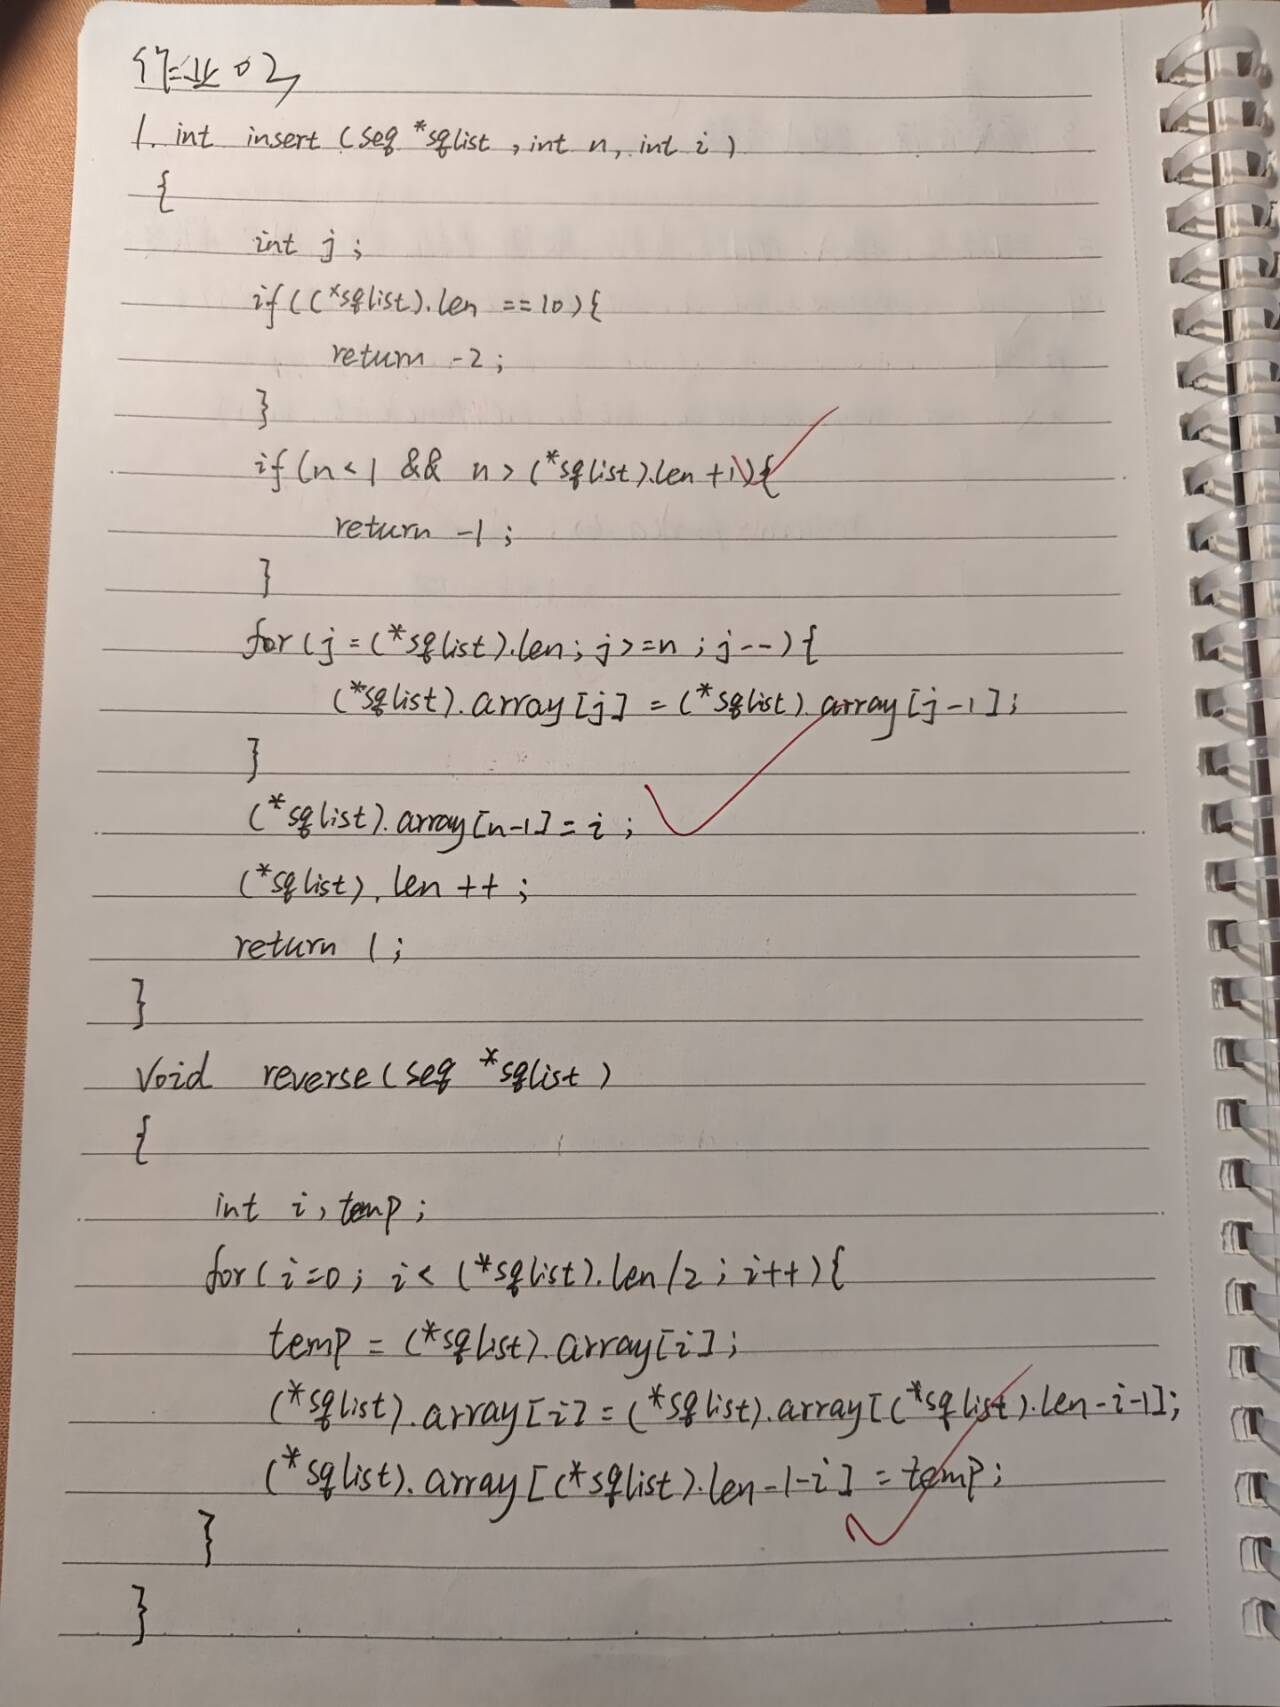 作业02
1. int insert (seq *sqlist, int n, int i)
{
int j;
if((*sqlist).len ==10){
return -2;
}
if(n<1 && n>(*sqlist).len+1){
return -1;
}
for(j=(*sqlist).len; j>=n; j--){
(*sqlist).array[j] = (*sqlist).array[j-1];
}
(*sqlist).array[n-1]=i;
(*sqlist).len++;
return 1;
}
void reverse(seq *sqlist)
{
int i, temp;
for(i=0; i<(*sqlist).len/2; i++){
temp = (*sqlist).array[i];
(*sqlist).array[i]=(*sqlist).array[(*sqlist).len-i-1];
(*sqlist).array[(*sqlist).len-1-i]=temp;
}
}